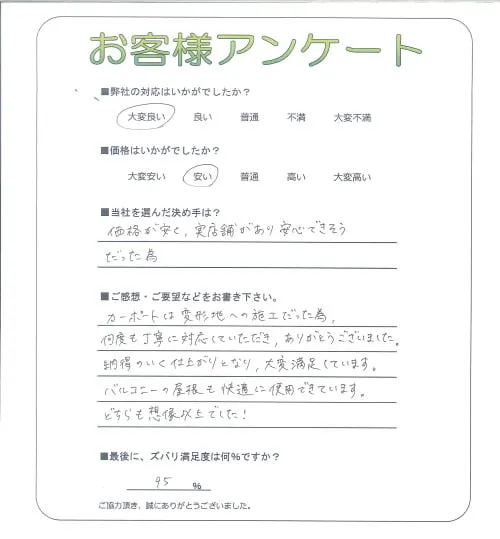 お客様アンケート
■弊社の対応はいかがでしたか？
大変良い 良い 普通 不満 大変不満
■価格はいかがでしたか？
大変安い 安い 普通 高い 大変高い
■当社を選んだ決め手は？
価格が安く、実店舗があり安心できそう
だった為
■ご感想・ご要望などをお書き下さい。
カーポートは変形地への施工だった為、
何度も丁寧に対応していただき、ありがとうございました。
納得のいく仕上がりとなり、大変満足しています。
バルコニーの屋根も快適に使用できています。
どちらも想像以上でした！
■最後に、ズバリ満足度は何％ですか？
95 ％
ご協力頂き、誠にありがとうございました。